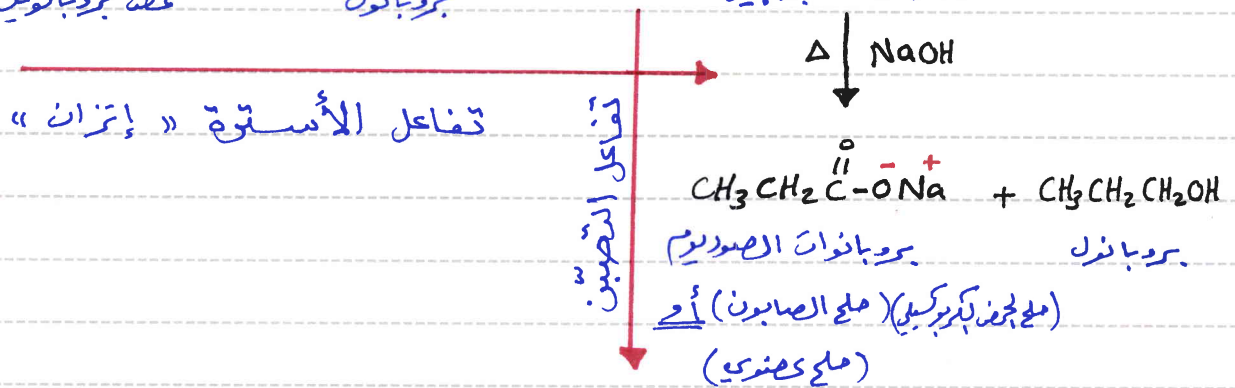 بروبانول
Δ NaOH
تفاعل الأسترة « إتزان »
تفاعل التصبّن
O
CH₃CH₂C-O⁻Na⁺ + CH₃CH₂CH₂OH
بروبانوات الصوديوم
بروبانول
(ملح الحمض الكربوكسيلي) (ملح الصابون) أو
(ملح عضوي)